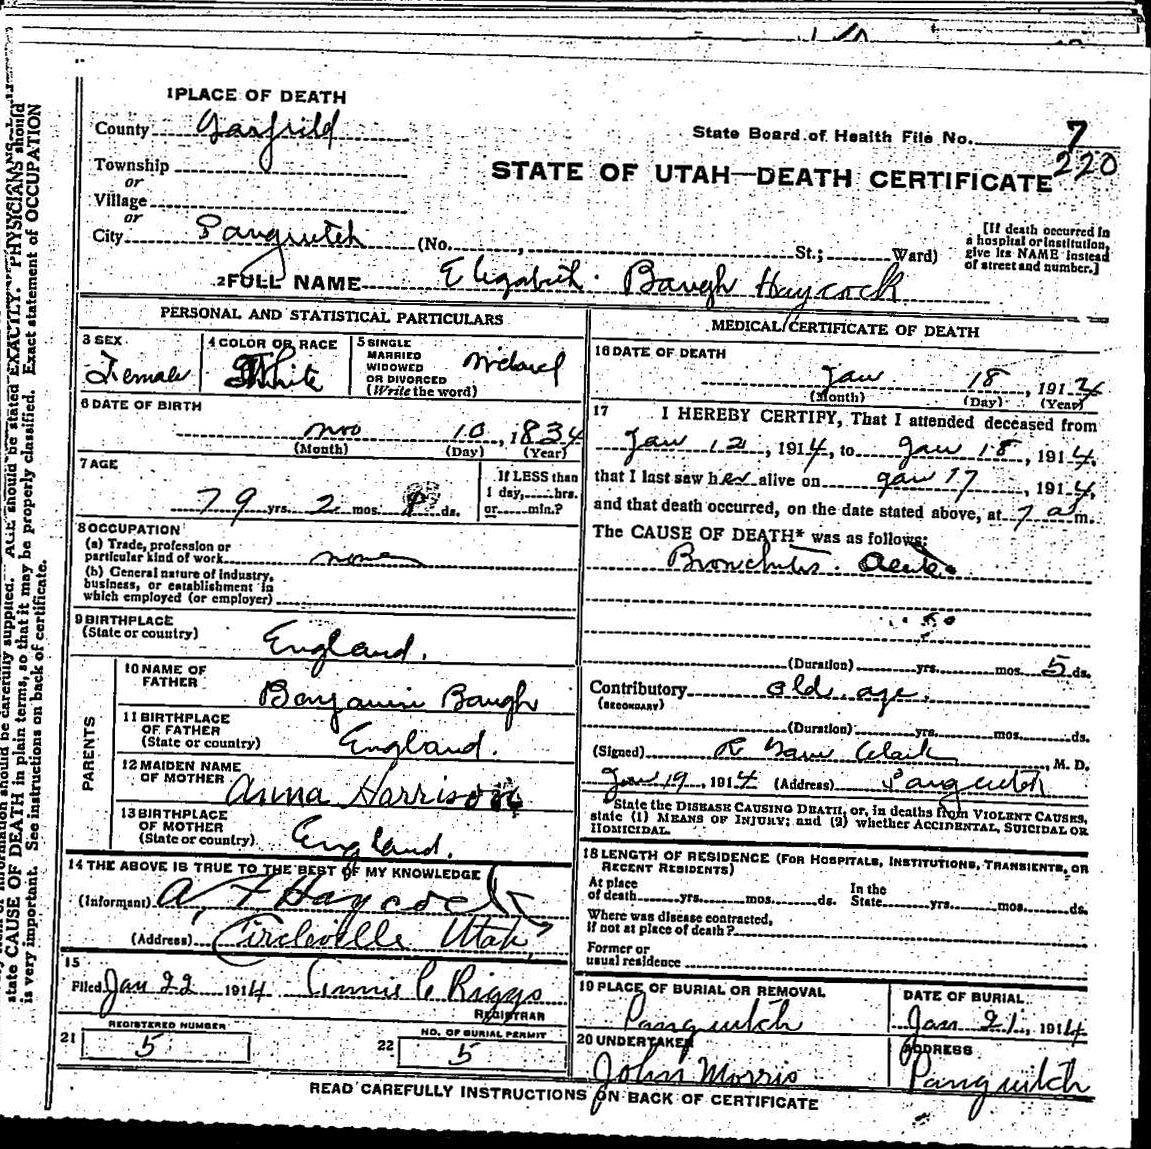 1 PLACE OF DEATH
County Garfield
State Board of Health File No. 7
220
Township
or
Village
or
STATE OF UTAH—DEATH CERTIFICATE
City Panguitch (No. , St.; Ward)
[If death occurred in
a hospital or institution,
give its NAME instead
of street and number.]
2 FULL NAME Elizabeth Baugh Haycock
PERSONAL AND STATISTICAL PARTICULARS
3 SEX
Female
4 COLOR OR RACE
White
5 SINGLE
MARRIED
WIDOWED
OR DIVORCED
(Write the word)
Widowed
6 DATE OF BIRTH
Nov 10, 1834
(Month) (Day) (Year)
7 AGE
79 yrs. 2 mos. 8 ds.
If LESS than
1 day, hrs.
or min.?
8 OCCUPATION
(a) Trade, profession or
particular kind of work none
(b) General nature of industry,
business, or establishment in
which employed (or employer)
9 BIRTHPLACE
(State or country)
England.
PARENTS
10 NAME OF
FATHER
Benjamin Baugh
11 BIRTHPLACE
OF FATHER
(State or country)
England.
12 MAIDEN NAME
OF MOTHER
Anna Harrison
13 BIRTHPLACE
OF MOTHER
(State or country)
England.
14 THE ABOVE IS TRUE TO THE BEST OF MY KNOWLEDGE
(Informant) A, F Haycock
(Address) Circleville Utah
15
Filed Jan 22 1914 Annie C Riggs
REGISTRAR
21
REGISTERED NUMBER
5
22
NO. OF BURIAL PERMIT
5
MEDICAL CERTIFICATE OF DEATH
16 DATE OF DEATH
Jan 18, 1914
(Month) (Day) (Year)
17 I HEREBY CERTIFY, That I attended deceased from
Jan 12, 1914, to Jan 18, 1914,
that I last saw her alive on Jan 17, 1914,
and that death occurred, on the date stated above, at 7 a m.
The CAUSE OF DEATH* was as follows:
Bronchitis. Acute.
(Duration) yrs. mos. 5 ds.
Contributory old age.
(SECONDARY)
(Duration) yrs. mos. ds.
(Signed) R Clark, M. D.
Jan 19, 1914 (Address) Panguitch
State the DISEASE CAUSING DEATH, or, in deaths from VIOLENT CAUSES,
state (1) MEANS OF INJURY; and (2) whether ACCIDENTAL, SUICIDAL OR
HOMICIDAL.
18 LENGTH OF RESIDENCE (FOR HOSPITALS, INSTITUTIONS, TRANSIENTS, OR
RECENT RESIDENTS)
At place
of death yrs. mos. ds.
In the
State yrs. mos. ds.
Where was disease contracted,
if not at place of death?
Former or
usual residence
19 PLACE OF BURIAL OR REMOVAL
Panguitch
DATE OF BURIAL
Jan 21, 1914
20 UNDERTAKER
John Morris
ADDRESS
Panguitch
READ CAREFULLY INSTRUCTIONS ON BACK OF CERTIFICATE
information should be carefully supplied. AGE should be stated EXACTLY. PHYSICIANS should
state CAUSE OF DEATH in plain terms, so that it may be properly classified. Exact statement of OCCUPATION
is very important. See instructions on back of certificate.